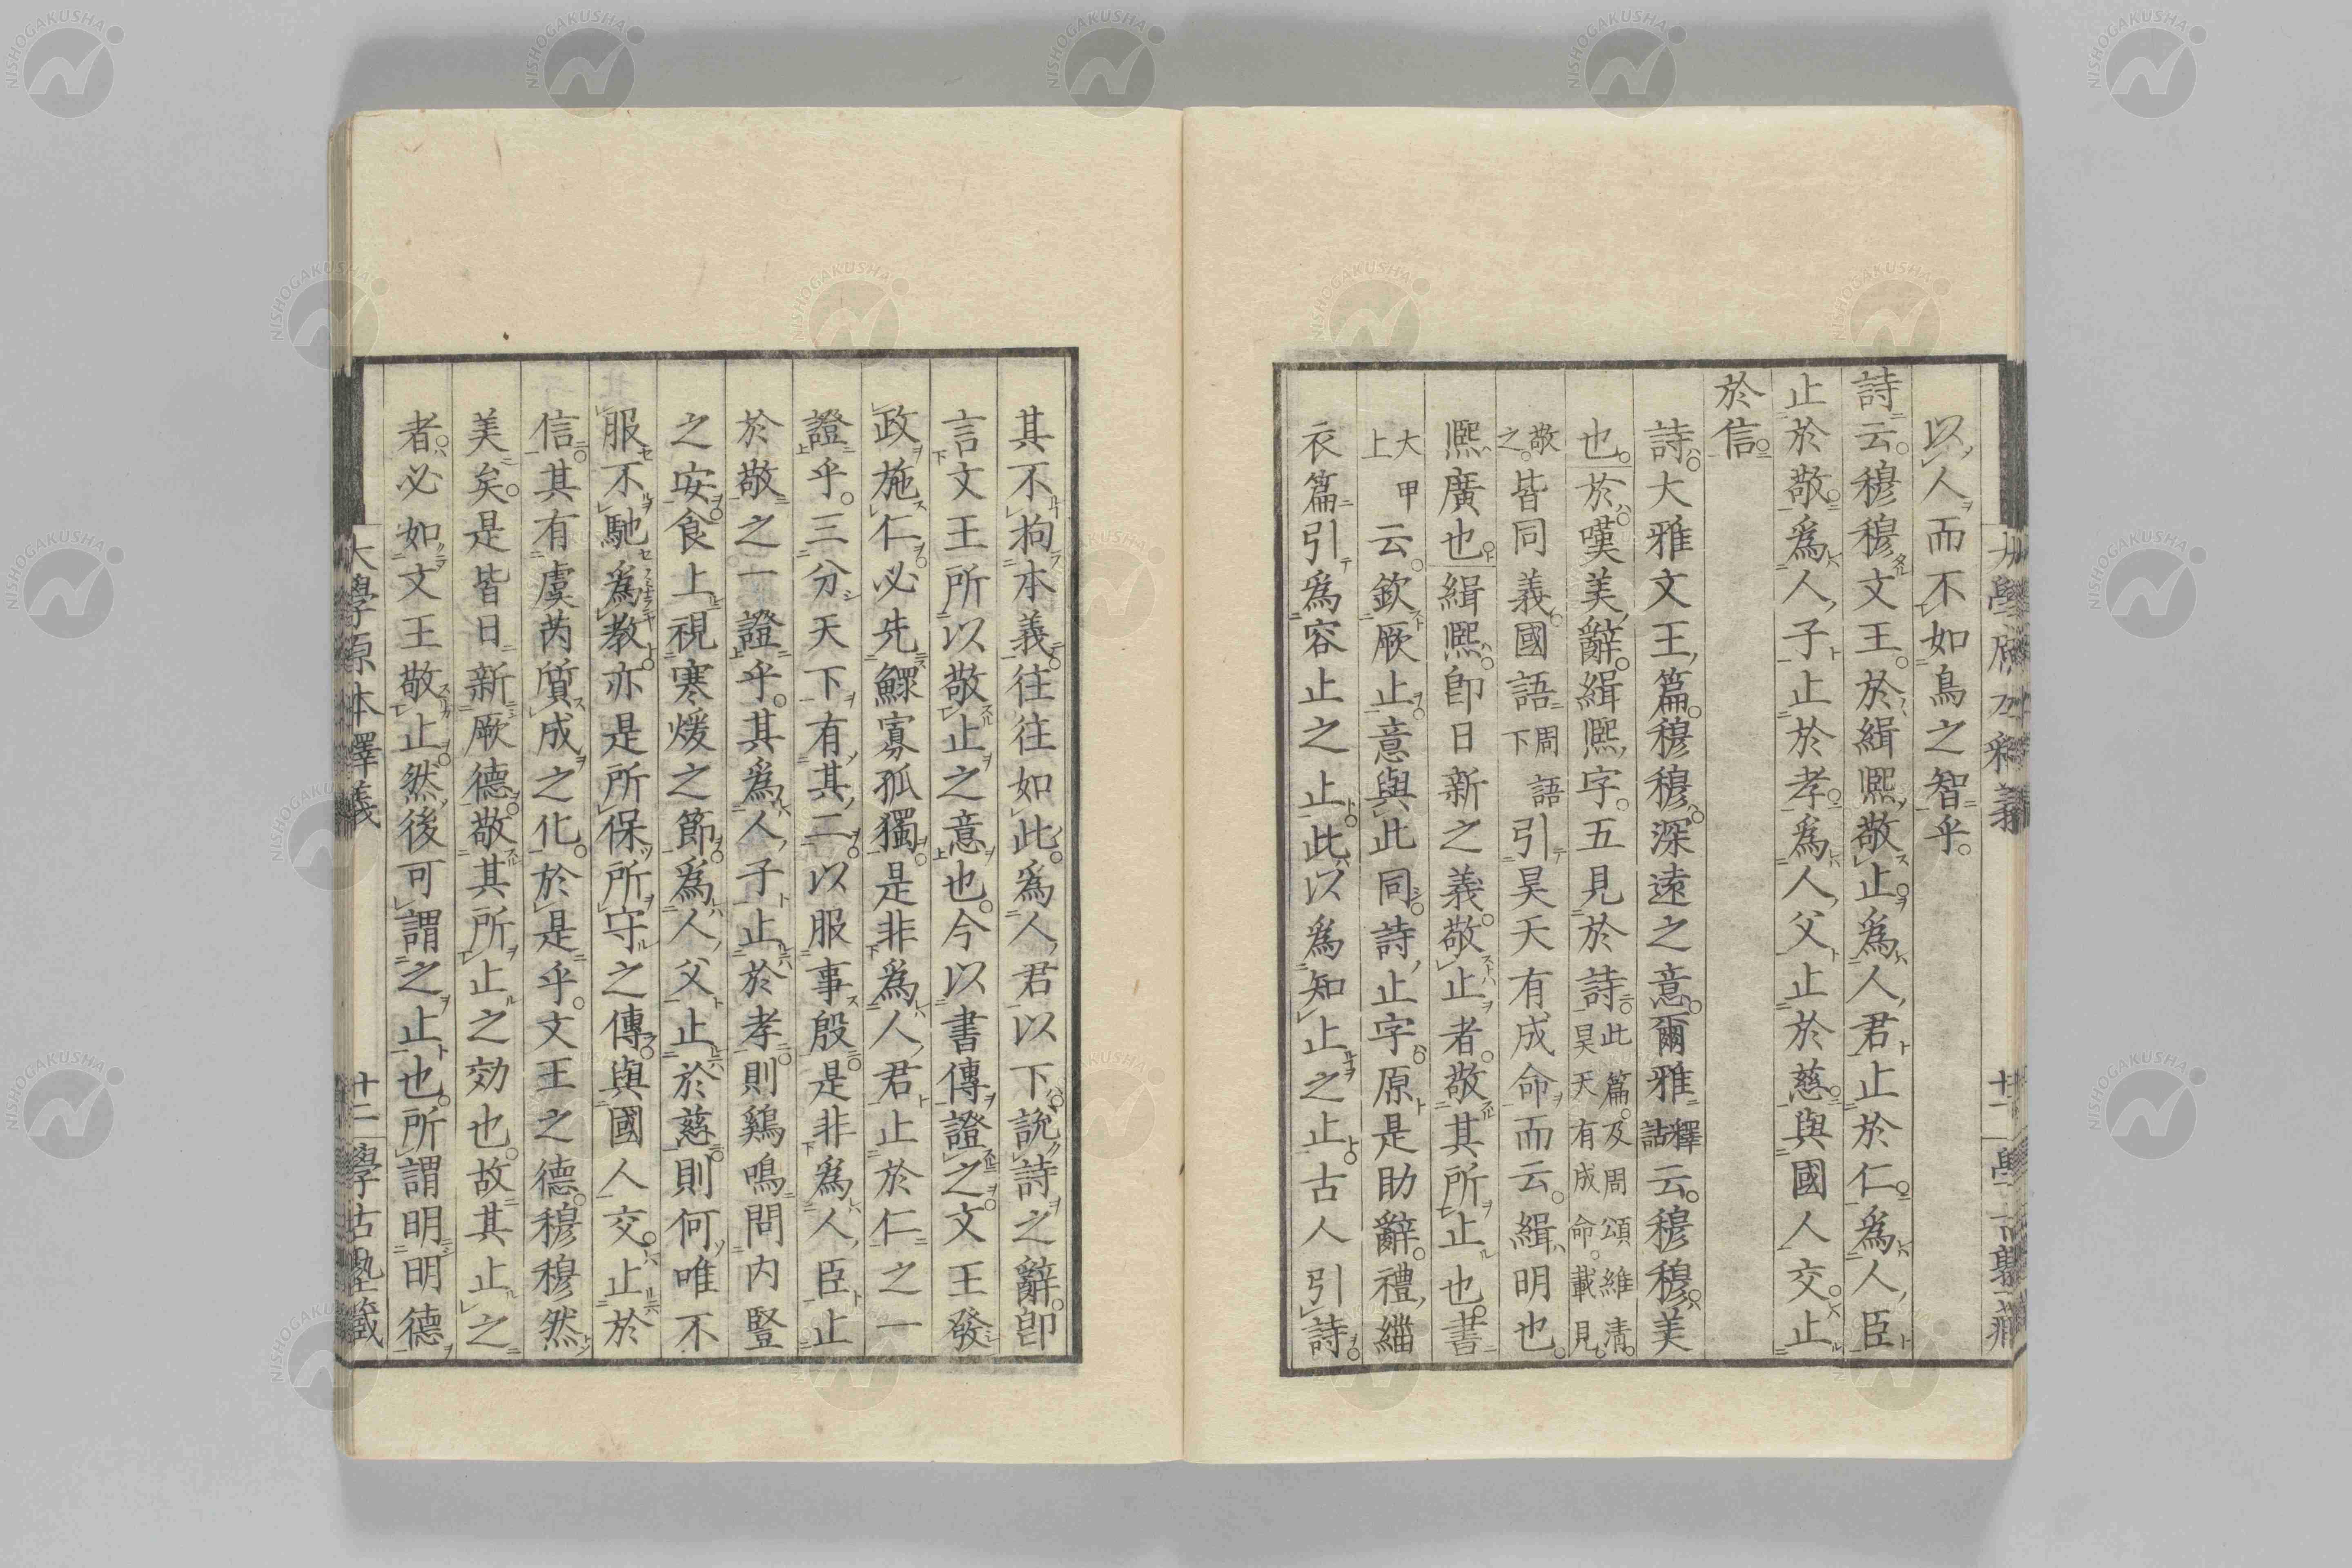 以人而不如鳥之智乎。
詩云。穆穆文王。於緝熙敬止。爲人君止於仁。爲人臣
止於敬。爲人子止於孝。爲人父止於慈。與國人交。止
於信。
詩。大雅文王篇。穆穆。深遠之意。爾雅釋詁云。穆穆。美
也。於。嘆美辭。緝熙字。五見於詩。此篇。及周頌維清。昊天有成命。載見。
敬之。皆同義。國語周語下引昊天有成命而云。緝明也。
熙廣也。緝熙。卽日新之義。敬止者。敬其所止也。書
大甲上云。欽厥止。意與此同。詩止字。原是助辭。禮緇
衣篇引爲容止之止。此以爲知止之止。古人引詩。
其不拘本義。往往如此。爲人君以下。說詩之辭。卽
言文王所以敬止之意也。今以書傳證之。文王發
政施仁。必先鰥寡孤獨。是非爲人君止於仁之一
證乎。三分天下有其二。以服事殷。是非爲人臣止
於敬之一證乎。其爲人子止於孝。則鷄鳴問內豎
之安。食上視寒煖之節。爲人父止於慈。則何唯不
服不馳爲教。亦是所保所守之傳。與國人交。止於
信。其有虞芮質成之化。於是乎。文王之德。穆穆然
美矣。是皆日新厥德。敬其所止之効也。故其止之
者。必如文王敬止。然後可謂之止也。所謂明明德
大學原本釋義
十二
學古塾藏